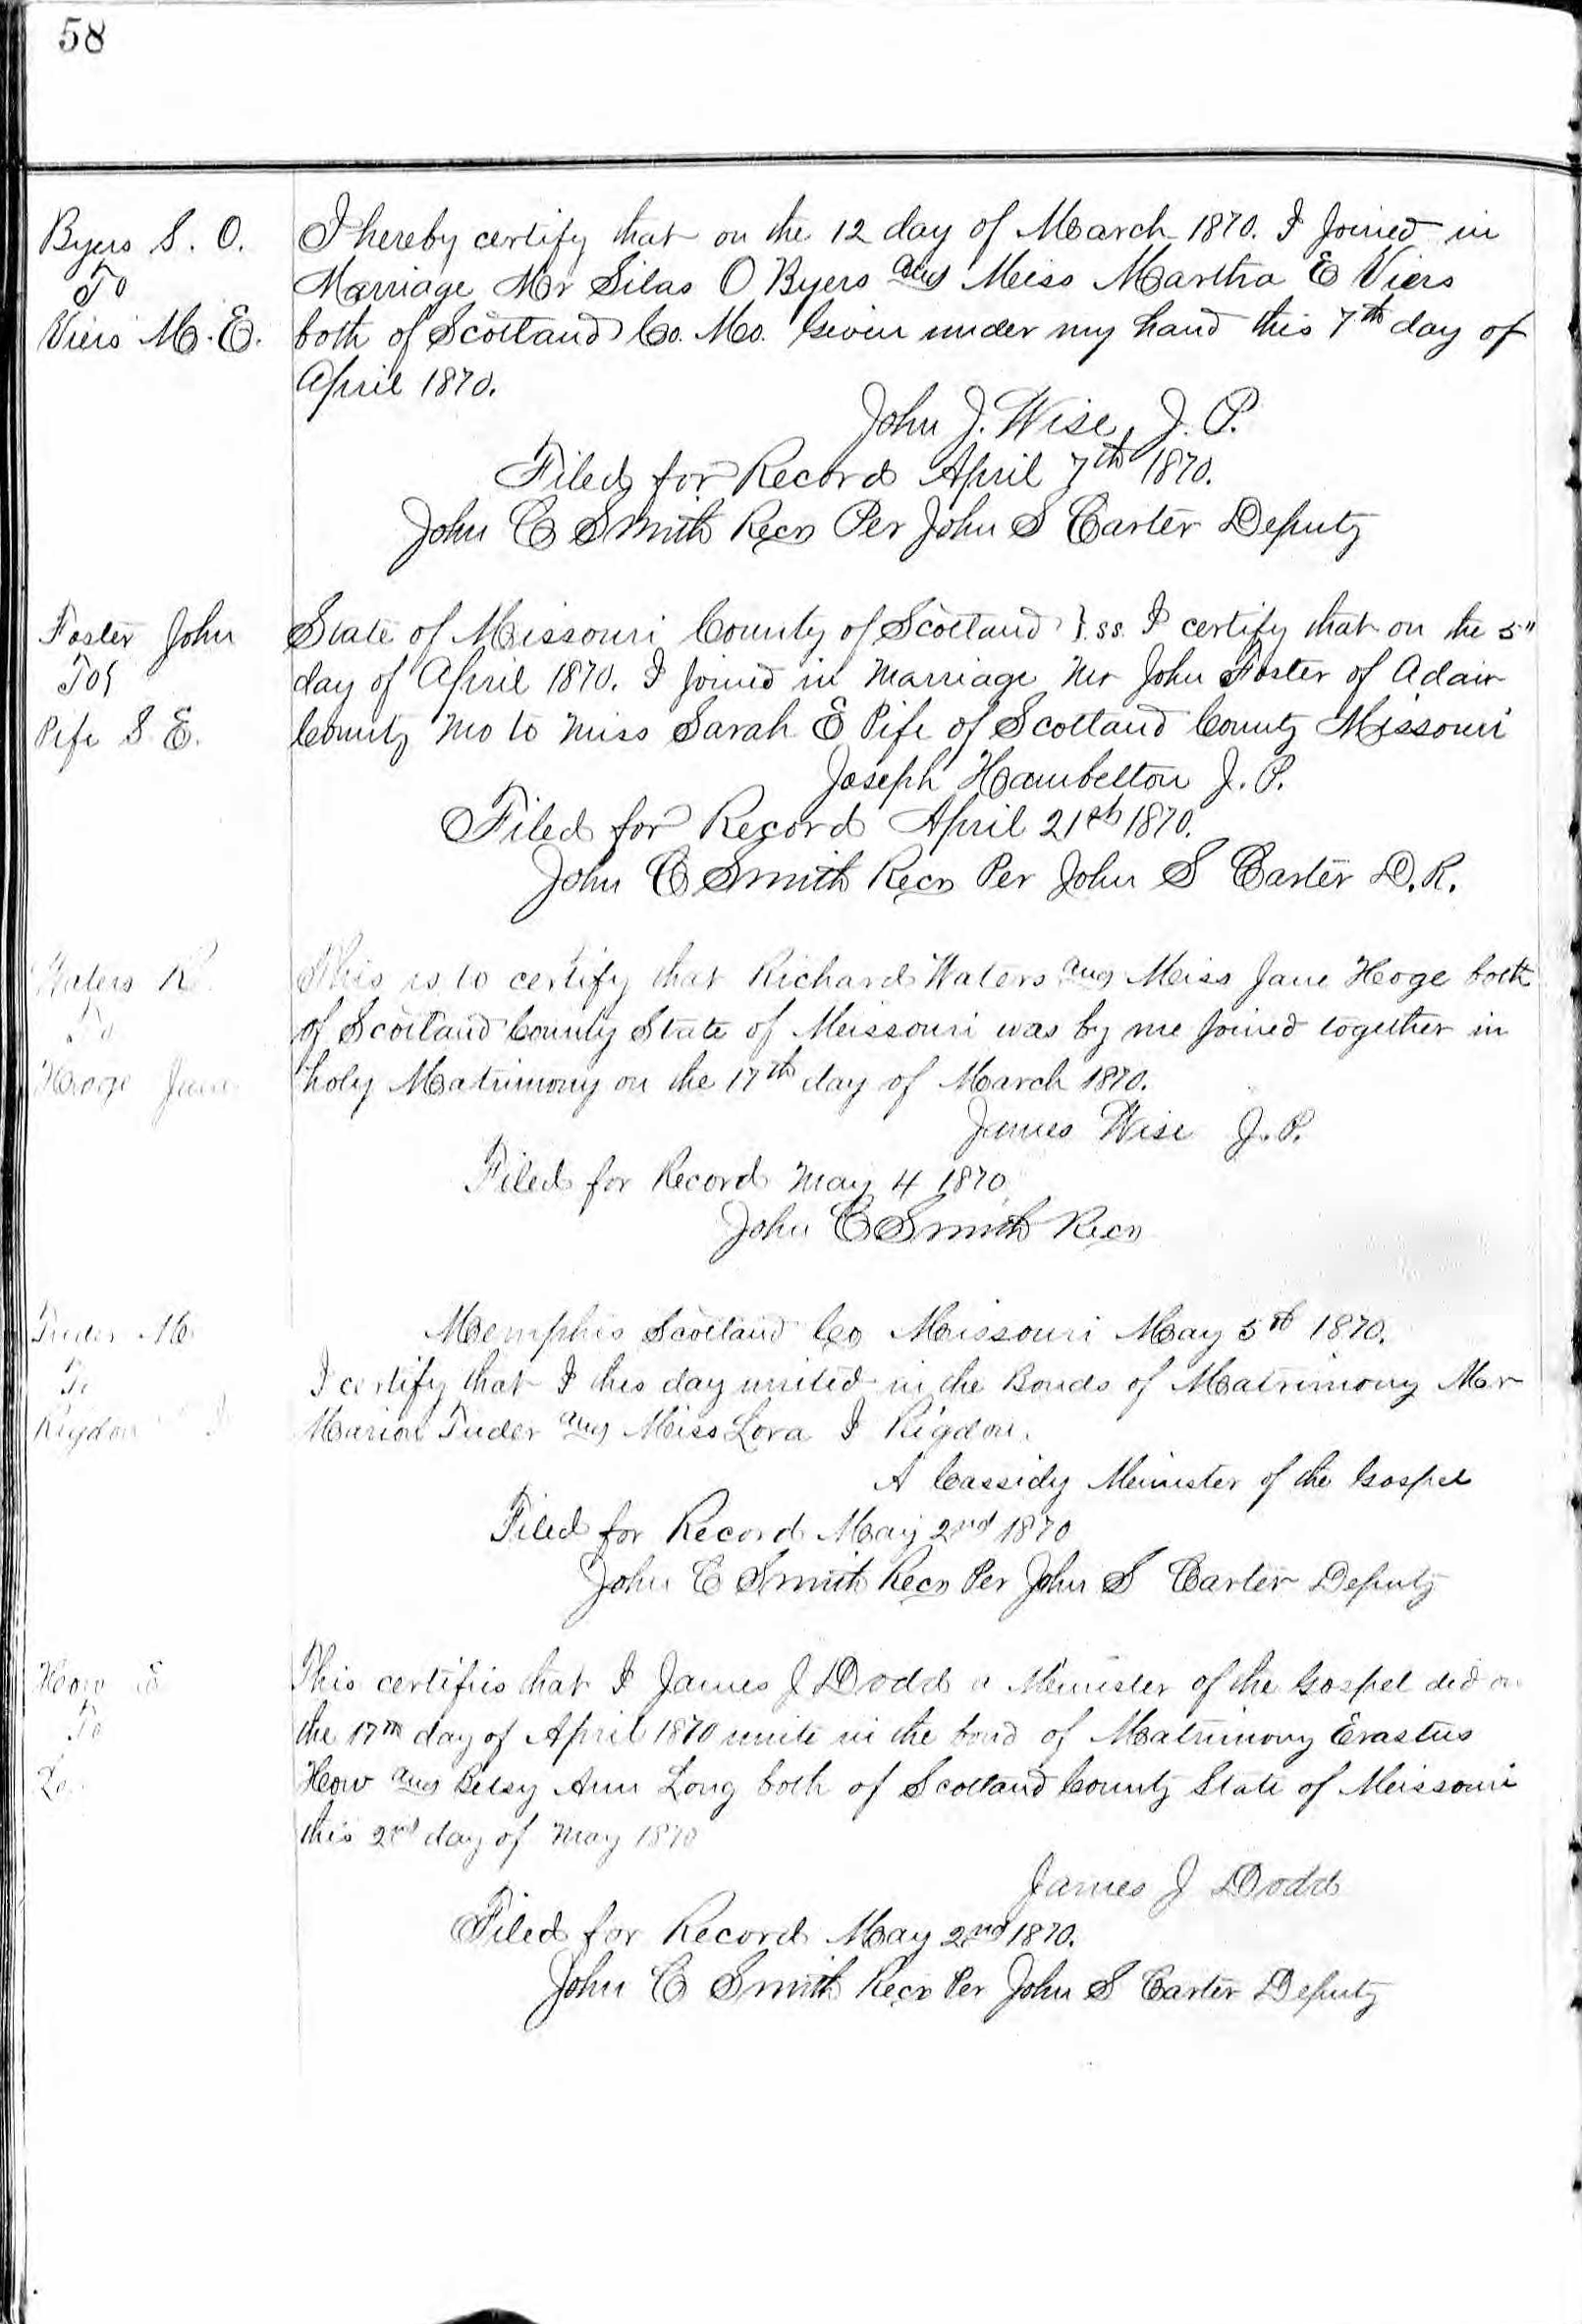 58
Byers S. O.
To
Viers M. E.
I hereby certify that on the 12 day of March 1870. I Joined in
Marriage Mr Silas O Byers and Miss Martha E Viers
both of Scotland Co. Mo. Given under my hand this 7th day of
April 1870.
John J. Wise, J. P.
Filed for Record April 7th 1870.
John C Smith Recr Per John S Carter Deputy
Foster John
To
Pife S. E.
State of Missouri County of Scotland }.ss. I certify that on the 5"
day of April 1870. I Joined in Marriage Mr John Foster of Adair
County Mo to Miss Sarah E Pife of Scotland County Missouri
Joseph Hambelton J. P.
Filed for Record April 21st 1870.
John C Smith Recr Per John S Carter D. R.
Waters R.
To
Hoge Jane
This is to certify that Richard Waters and Miss Jane Hoge both
of Scotland County State of Missouri was by me Joined together in
holy Matrimony on the 17th day of March 1870.
James Wise J. P.
Filed for Record May 4 1870
John C Smith Recr
Tuder M
To
Rigdon
Memphis Scotland Co Missouri May 5th 1870.
I certify that I this day united in the Bonds of Matrimony Mr
Marion Tuder and Miss Lora I Rigdon.
A Cassidy Minister of the Gospel
Filed for Record May 2nd 1870
John C Smith Recr Per John S Carter Deputy
How E
To
Lo
This certifies that I James J Dodd a Minister of the Gospel did on
the 17th day of April 1870 unite in the bond of Matrimony Erastus
How and Betsy Ann Long both of Scotland County State of Missouri
this 2nd day of May 1870
James J Dodd
Filed for Record May 2nd 1870.
John C Smith Recr Per John S Carter Deputy